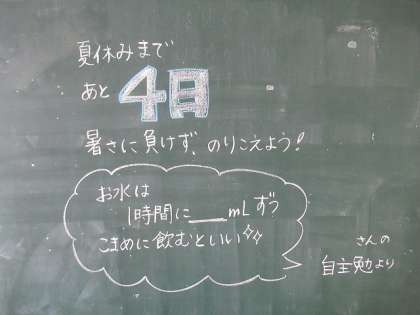 夏休みまで
あと 4日
暑さに負けず、のりこえよう!
お水は
1時間に___mLずつ
こまめに飲むといい✨
さんの
自主勉より